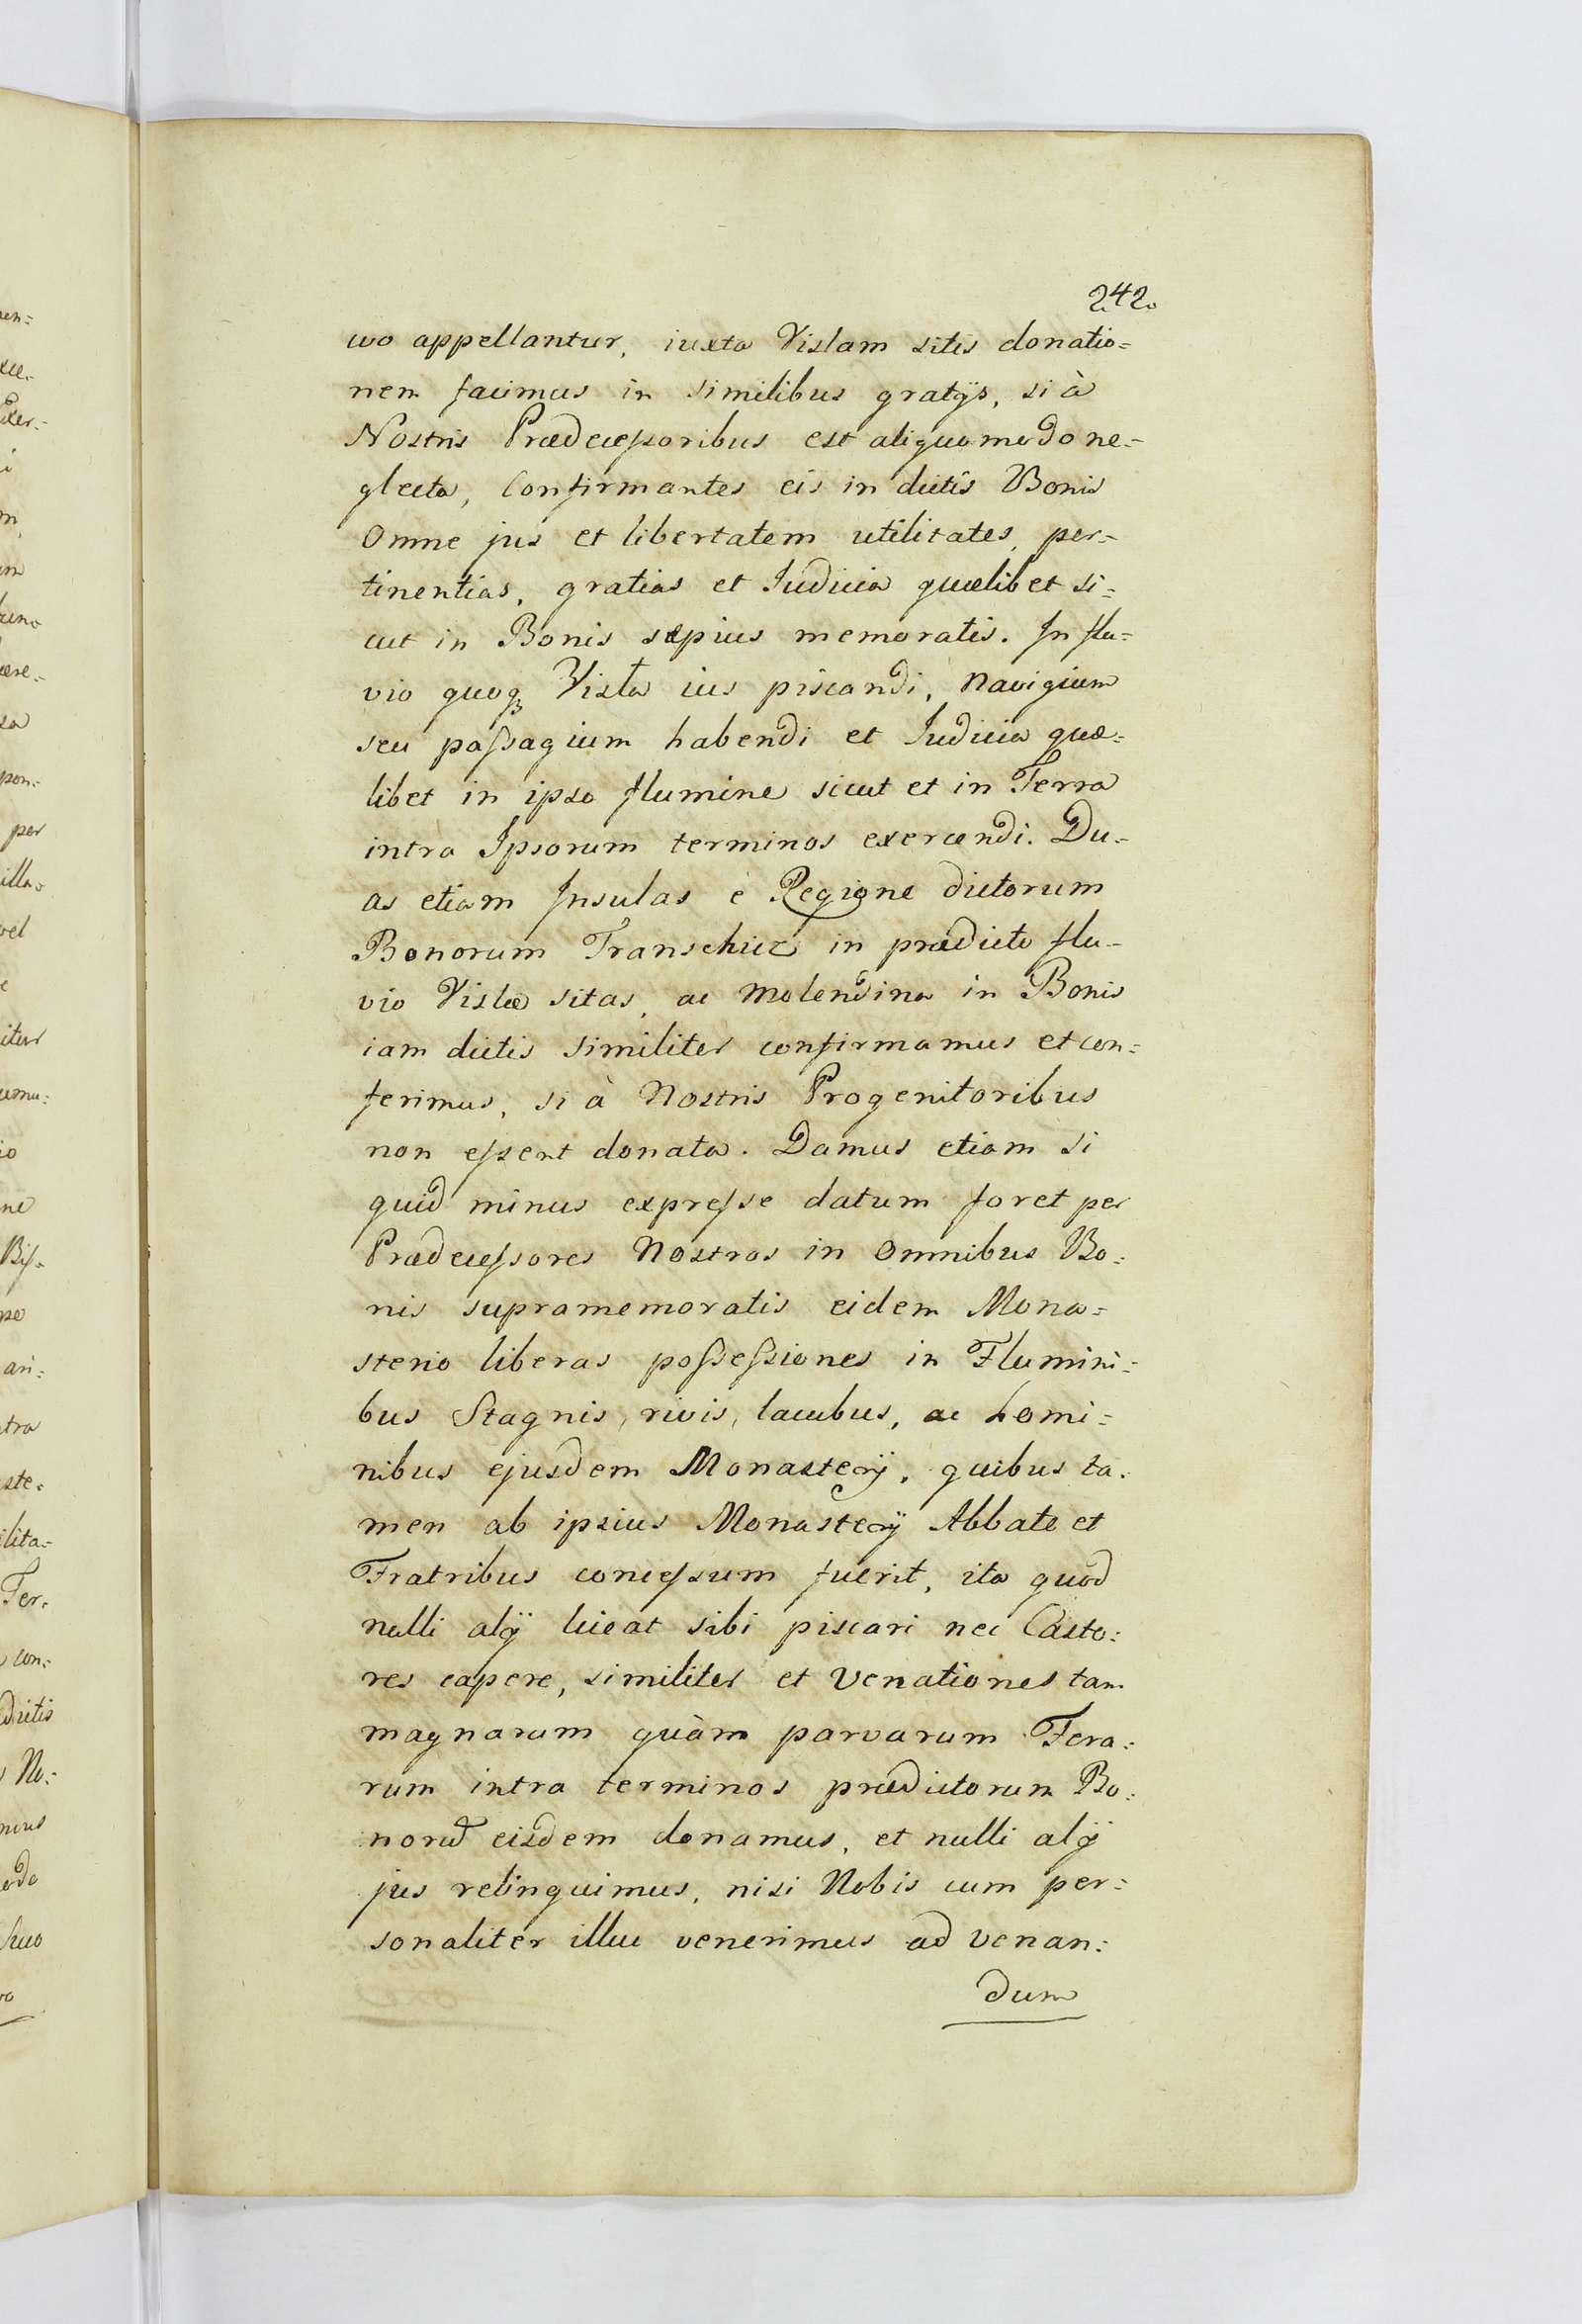 242.
wo appellantur, iuxta Vislam sitis donatio=
nem facimus in similibus gratÿs, si à
Nostris Prædecessoribus est aliquomodo ne=
glecta, Confirmantes eis in dictis Bonis
Omne jus et libertatem utilitates, per=
tinentias, gratias et Iudicia quælibet si=
cut in Bonis sæpius memoratis. In flu=
vio quoqꝫ Visła ius piscandi, Navigium
seu passagium habendi et Iudicia quæ=
libet in ipso flumine sicut et in Terra
intra Ipsorum terminos exercendi. Du=
as etiam Insulas è Regione dictorum
Bonorum Transchicz in prædicto flu=
vio Vislæ sitas, ac Molendina in Bonis
iam dictis similiter confirmamus et con=
ferimus, si à Nostris Progenitoribus
non essent donata. Damus etiam si
quid minus expresse datum foret per
Prædecessores Nostros in Omnibus Bo=
nis supramemoratis eidem Mona=
sterio liberas possessiones in Flumini=
bus Stagnis, rivis, lacubus, ac homi=
nibus ejusdem Monasterÿ, quibus ta=
men ab ipsius Monasterÿ Abbate et
Fratribus concessum fuerit, ita quòd
nulli alÿ liceat sibi piscari nec Casto=
res capere, similiter et Venationes tam
magnarum quàm parvarum Fera=
rum intra terminos prædictorum Bo=
norum̃ eisdem donamus, et nulli alÿ
jus relinquimus, nisi Nobis cum per=
sonaliter illuc venerimus ad venan=
dum